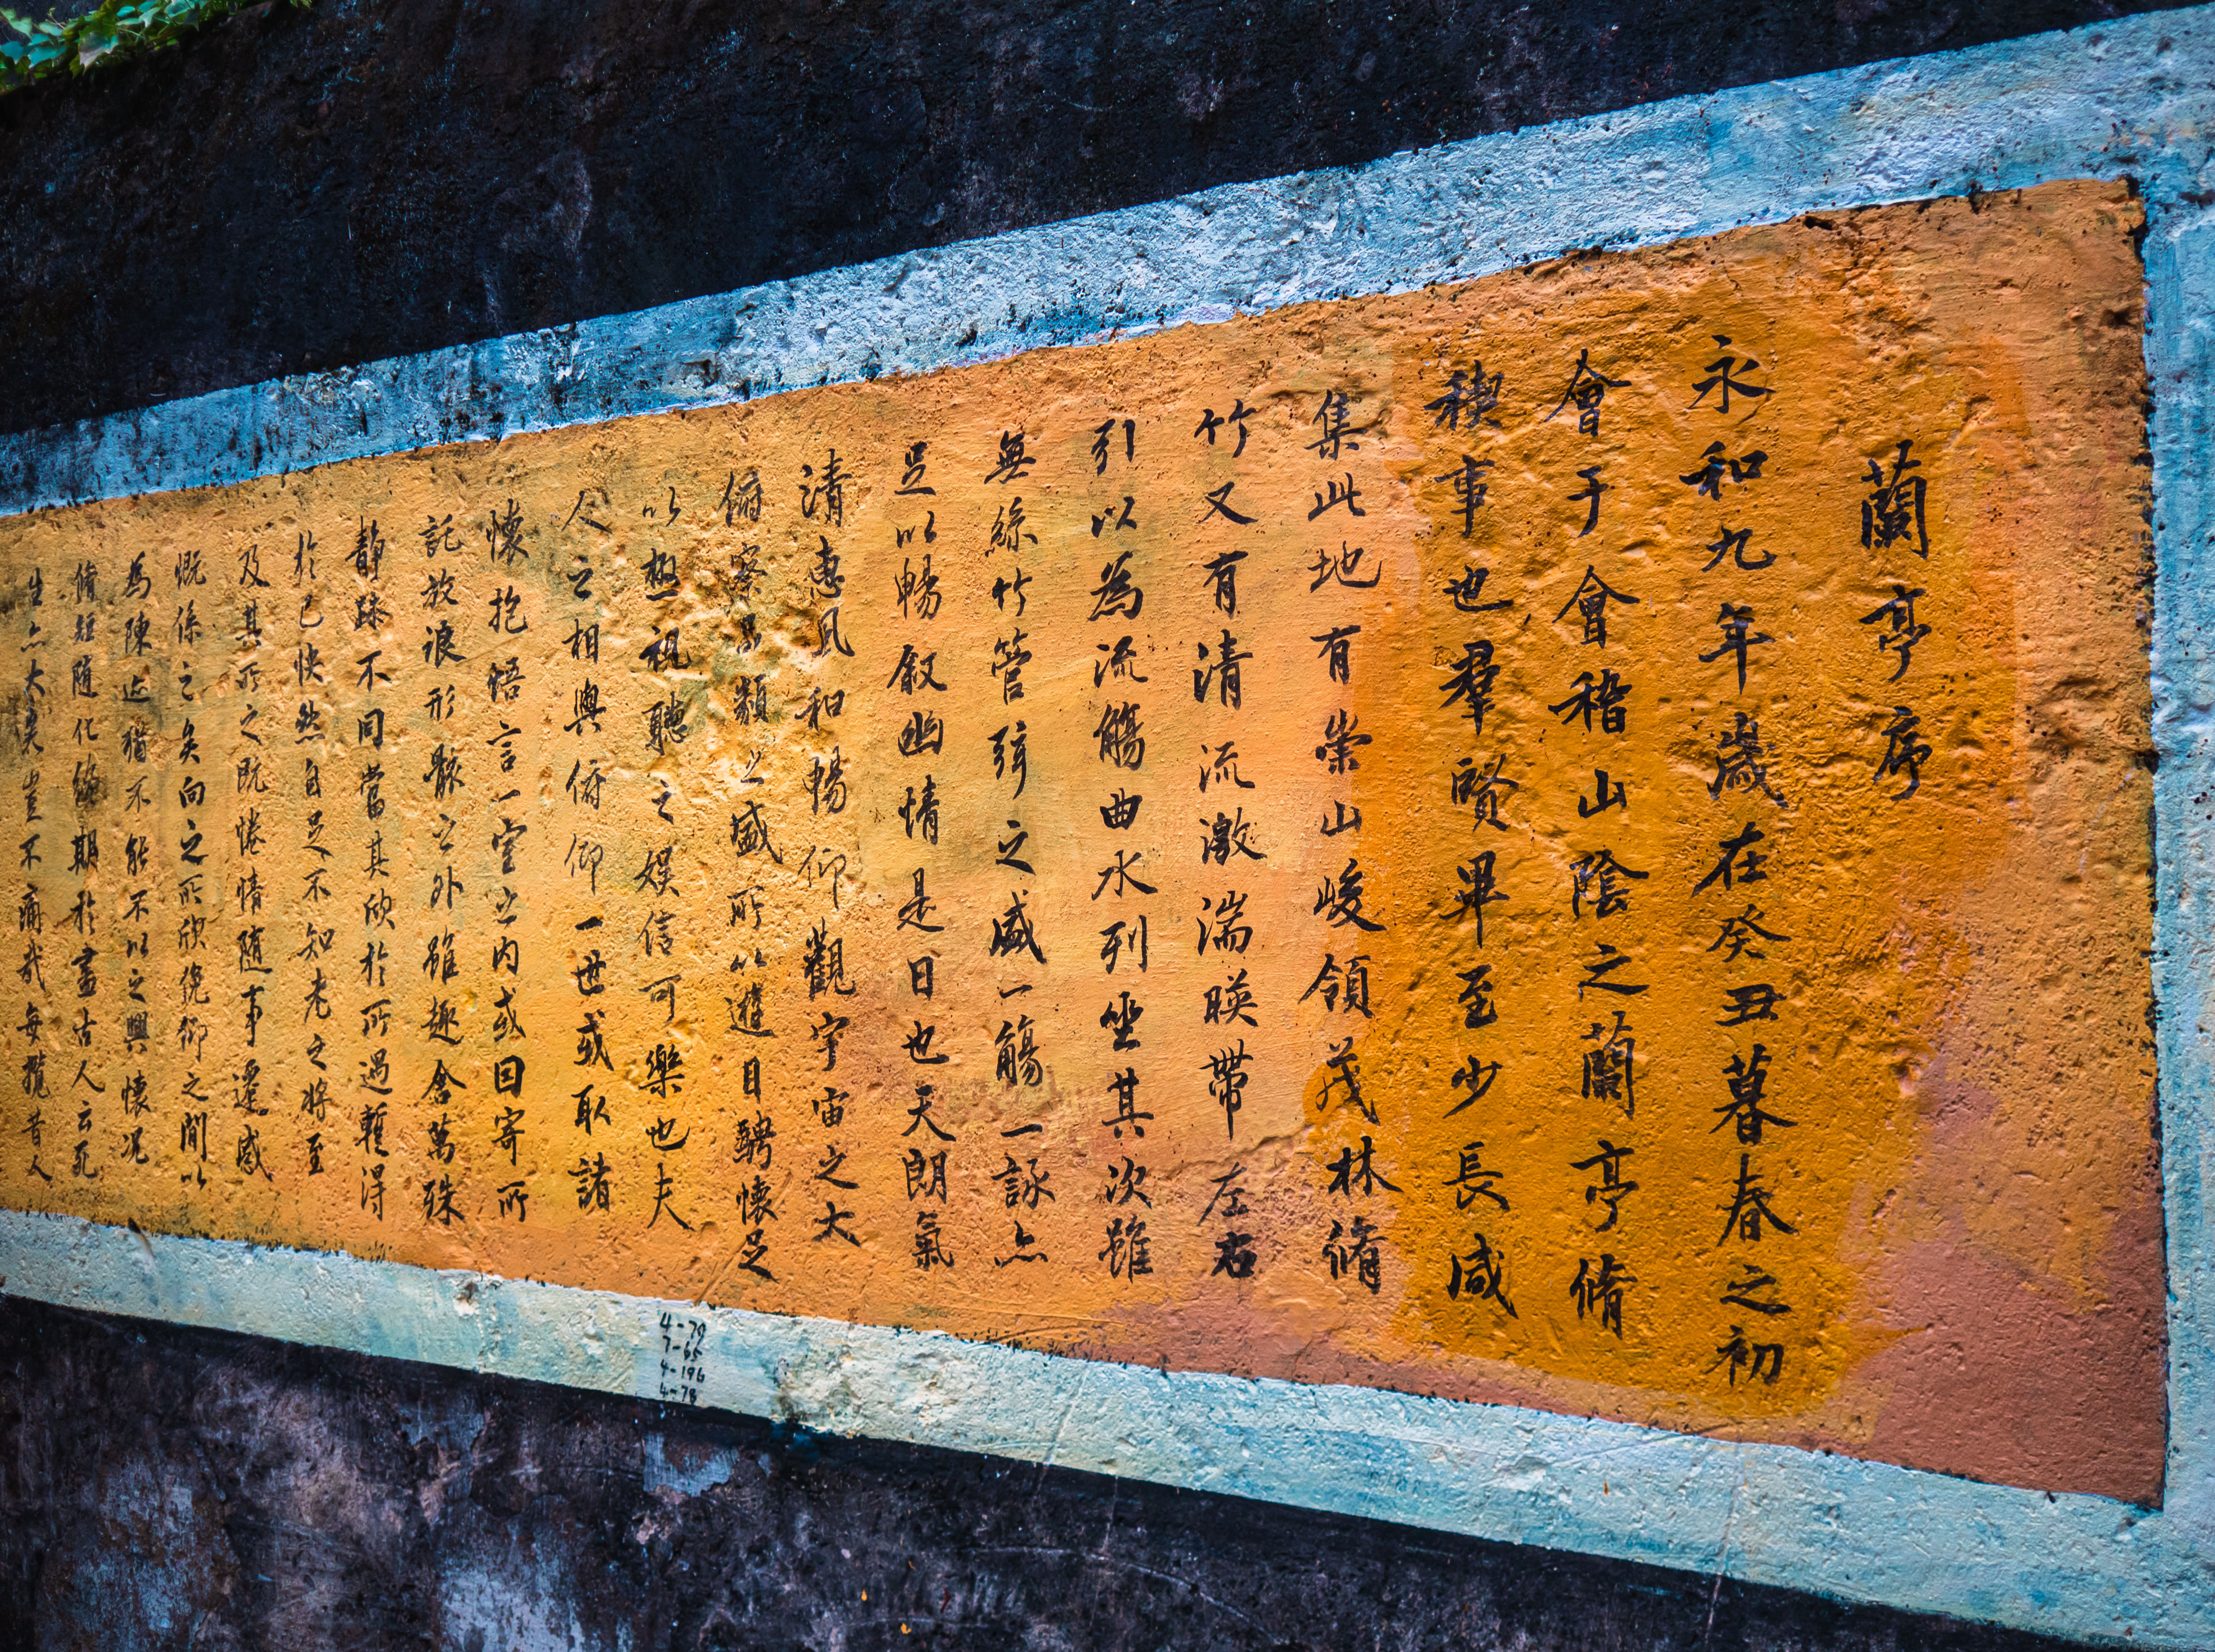 蘭亭序
永和九年歲在癸丑暮春之初
會于會稽山陰之蘭亭脩
稧事也羣賢畢至少長咸
集此地有崇山峻領茂林脩
竹又有清流激湍暎帶左右
引以為流觴曲水列坐其次雖
無絲竹管弦之盛一觴一詠亦
足以暢叙幽情是日也天朗氣
清惠風和暢仰觀宇宙之大
俯察品類之盛所以遊目騁懷足
以極視聽之娛信可樂也夫
人之相與俯仰一世或取諸
懷抱悟言一室之内或因寄所
託放浪形骸之外雖趣舍萬殊
靜躁不同當其欣於所遇暫得
於己快然自足不知老之將至
及其所之既惓情隨事遷感
慨係之矣向之所欣俛仰之間以
為陳迹猶不能不以之興懷況
脩短隨化終期於盡古人云死
生亦大矣豈不痛哉每攬昔人
4-79
7-65
4-196
4-78